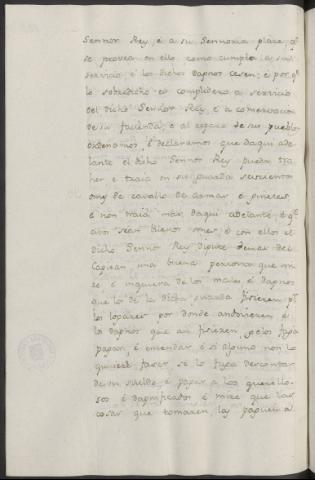 Sennor Rey, é a su Sennoria place, q.
se provea en ello como cumple a su
servicio, é los dichos dapnos cesen; é por q.
lo sobredicho es complidero a servicio
del dicho Sennor Rey, é a conservacion
de su facienda, é al reparo de sus pueblos
ordenamos, é declaramos que daqui ade-
lante el dicho Sennor Rey pueda tra-
her é traia en su guarda seiscientos
omes de cavallo de armas, é ginetes,
é non traia mas daqui adelante, é q.
estos sean buenos omes, é con ellos el
dicho Sennor Rey dipute demas del
Capitan una buena persona que mi-
re é inquiera de los males é dapnos
que los de la dicha guarda ficieren p.r
los logares por donde andovieren, é
los dapnos que asi ficieren, gelos faga
pagar, é emendar, é si alguno non lo
quisiere facer, se lo faga descontar
de su sueldo, é pagar a los querello-
sos é dapnificados, é mire que las
cosas que tomaren, las paguen a